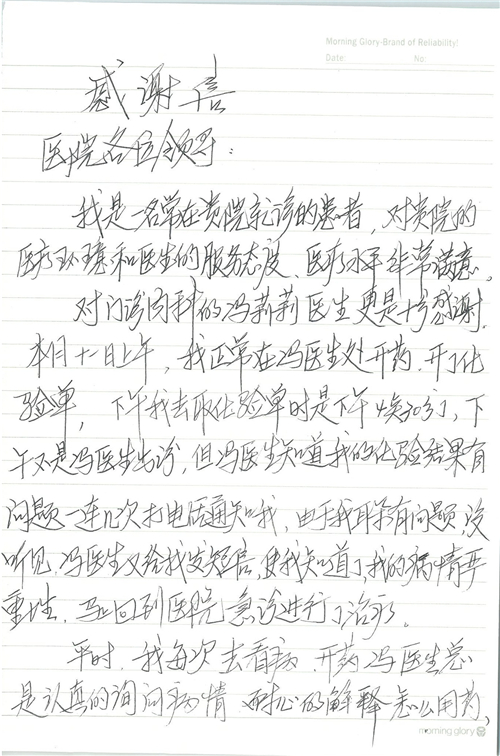 Morning Glory-Brand of Reliability!
Date: No:
感谢信
医院各位领导：
我是一名常在贵院就诊的患者，对贵院的
医疗环境和医生的服务态度、医疗水平非常满意，
对门诊内科的冯莉莉医生更是十分感谢。
本月十一日上午，我正常在冯医生处开药，开了化
验单，下午我去取化验单时是下午4点30了，下
午又是冯医生出诊，但冯医生知道我的化验结果有
问题一连几次打电话通知我，由于我耳朵有问题没
听见，冯医生又给我发短信，使我知道了我的病情严
重性，马上回到医院急诊进行了治疗。
平时，我每次去看病、开药冯医生总
是认真的询问病情 耐心的解释怎么用药，
morning glory